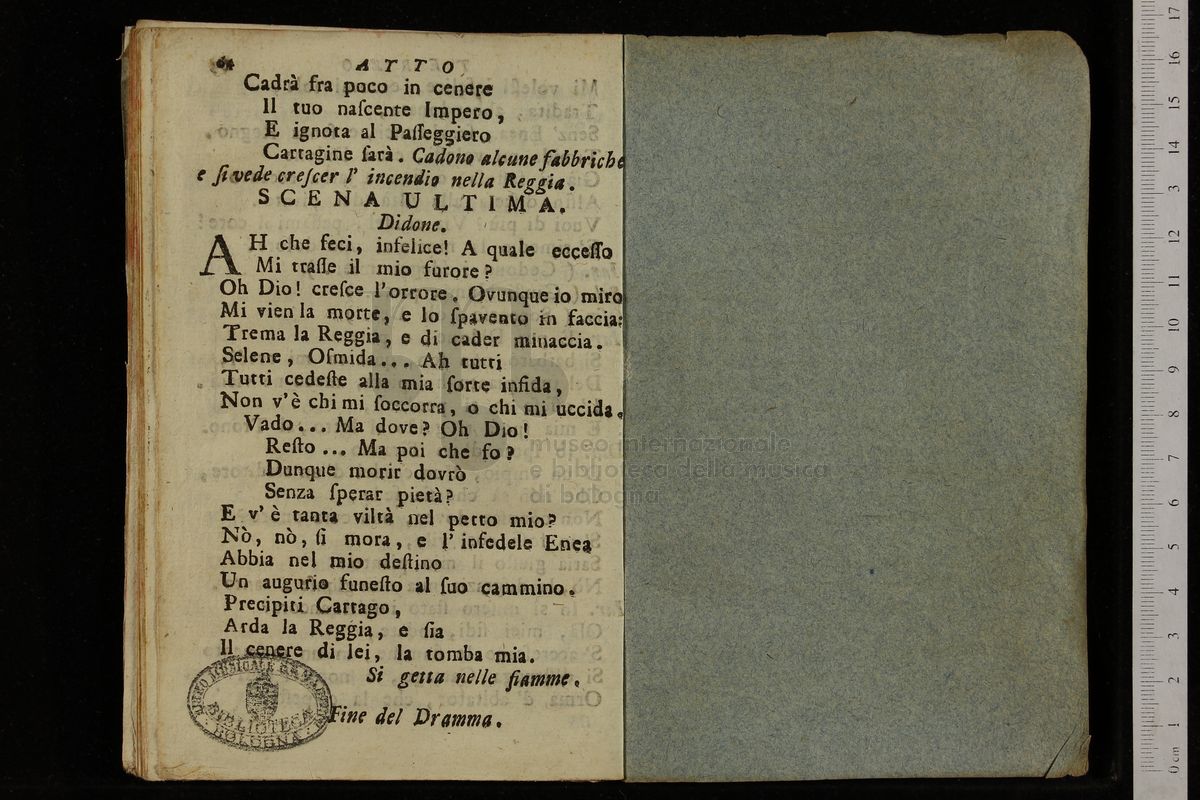 64
ATTO
Cadrà fra poco in cenere
Il tuo naſcente Impero,
E ignota al Paſſeggiero
Cartagine ſarà. Cadono alcune fabbriche
e ſi vede creſcer l' incendio nella Reggia.
SCENA ULTIMA.
Didone.
AH che feci, infelice! A quale ecceſſo
Mi traſſe il mio furore?
Oh Dio! creſce l'orrore. Ovunque io miro
Mi vien la morte, e lo ſpavento in faccia:
Trema la Reggia, e di cader minaccia.
Selene, Oſmida... Ah tutti
Tutti cedeſte alla mia ſorte infida,
Non v'è chi mi ſoccorra, o chi mi uccida.
Vado... Ma dove? Oh Dio!
Reſto... Ma poi che fo?
Dunque morir dovrò
Senza ſperar pietà?
E v' è tanta viltà nel petto mio?
Nò, nò, ſi mora, e l' infedele Enea
Abbia nel mio deſtino
Un augurio funeſto al ſuo cammino.
Precipiti Cartago,
Arda la Reggia, e ſia
Il cenere di lei, la tomba mia.
Si getta nelle fiamme.
Fine del Dramma.
BIBLIOTECA
BOLOGNA
museo internazionale
e biblioteca della musica
di bologna
0 cm 1 2 3 4 5 6 7 8 9 10 11 12 13 14 15 16 17